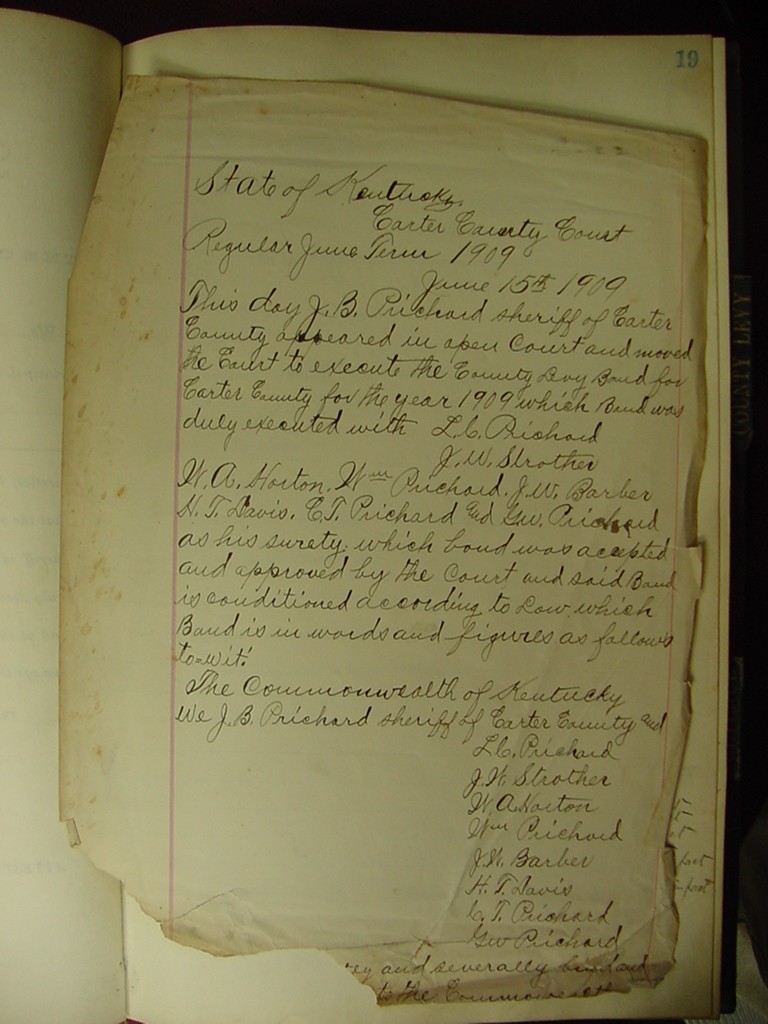 19
State of Kentucky
Carter County Court
Regular June Term 1909
June 15th 1909
This day J. B. Prichard sheriff of Carter
County appeared in open Court and moved
the Court to execute the County Levy Bond for
Carter County for the year 1909 which Bond was
duly executed with L.C. Prichard
J. W. Strother
W. A. Horton. Wm Prichard. J. W. Barber
H. T. Davis. C. T. Prichard and Geo. Prichard
as his surety. which bond was accepted
and approved by the Court and said Bond
is conditioned according to Law which
Bond is in words and figures as follows
to-wit:
The Commonwealth of Kentucky
We J. B. Prichard sheriff of Carter County and
L.C. Prichard
J. W. Strother
W. A Horton
Wm Prichard
J. W. Barber
H. T. Davis
C. T. Prichard
Geo Prichard
and severally bind
to the Commonwealth
COUNTY LEVY